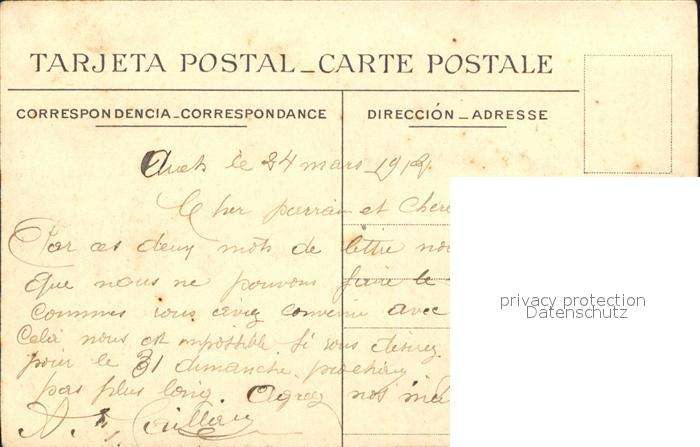 TARJETA POSTAL_CARTE POSTALE
CORRESPONDENCIA_CORRESPONDANCE
DIRECCIÓN_ADRESSE
le 24 mars 1912
Cher parrain et Chere
Par ces deux mots de lettre nou
que nous ne pouvons faire le
commes vous aviez convenu avec
Celà nous est impossible Si vous desirez
pour le 31 dimanche prochain
pas plus long. Agreez nos meil
privacy protection
Datenschutz